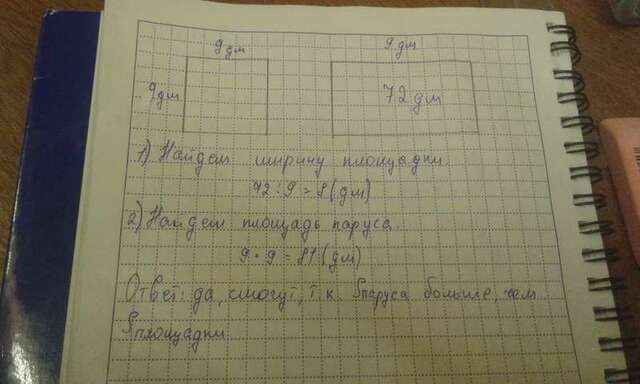 9 дм
9 дм
9 дм
72 дм
1) Найдем ширину площадки.
72 : 9 = 8 (дм)
2) Найдем площадь паруса.
9 • 9 = 81 (дм)
Ответ: да, смогут, т к Sпаруса больше, чем
Sплощадки